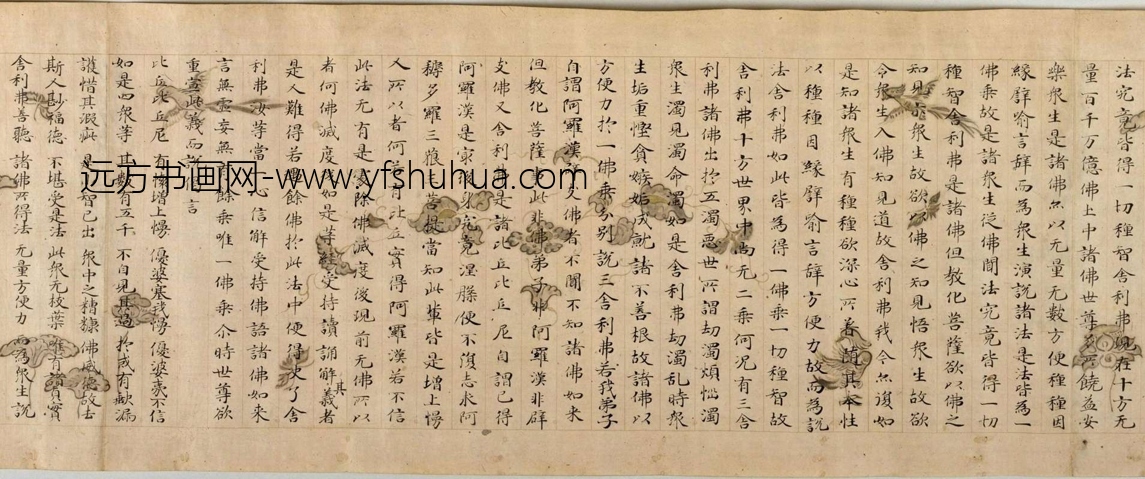 法究竟皆得一切種智舍利弗現在十方无
量百千万億佛土中諸佛世尊多所饒益安
樂衆生是諸佛亦以无量无數方便種種因
緣譬喻言辭而為衆生演說諸法是法皆為一
佛乘故是諸衆生從佛聞法究竟皆得一切
種智舍利弗是諸佛但教化菩薩欲以佛之
知見示衆生故欲以佛之知見悟衆生故欲
令衆生入佛知見道故舍利弗我今亦復如
是知諸衆生有種種欲深心所著隨其本性
以種種因緣譬喻言辭方便力故而為說
法舍利弗如此皆為得一佛乘一切種智故
舍利弗十方世界中尚无二乘何況有三舍
利弗諸佛出於五濁惡世所謂劫濁煩惱濁
衆生濁見濁命濁如是舍利弗劫濁乱時衆
生垢重慳貪嫉妬成就諸不善根故諸佛以
方便力於一佛乘分別說三舍利弗若我弟子
自謂阿羅漢辟支佛者不聞不知諸佛如來
但教化菩薩事此非佛弟子非阿羅漢非辟
支佛又舍利弗是諸比丘比丘尼自謂已得
阿羅漢是最後身究竟涅槃便不復志求阿
耨多羅三藐三菩提當知此輩皆是增上慢
人所以者何若有比丘實得阿羅漢若不信
此法无有是處除佛滅度後現前无佛所以
者何佛滅度後如是等經受持讀誦解其義者
是人難得若遇餘佛於此法中便得決了舍
利弗汝等當一心信解受持佛語諸佛如來
言無虛妄無有餘乘唯一佛乘尒時世尊欲
重宣此義而說偈言
比丘比丘尼 有懷增上慢 優婆塞我慢 優婆夷不信
如是四衆等 其數有五千 不自見其過 於戒有缺漏
護惜其瑕疵 是小智已出 衆中之糟糠 佛威德故去
斯人尠福德 不堪受是法 此衆无枝葉 唯有諸真實
舍利弗善聽 諸佛所得法 无量方便力 而為衆生說
远方书画网-www.yfshuhua.com